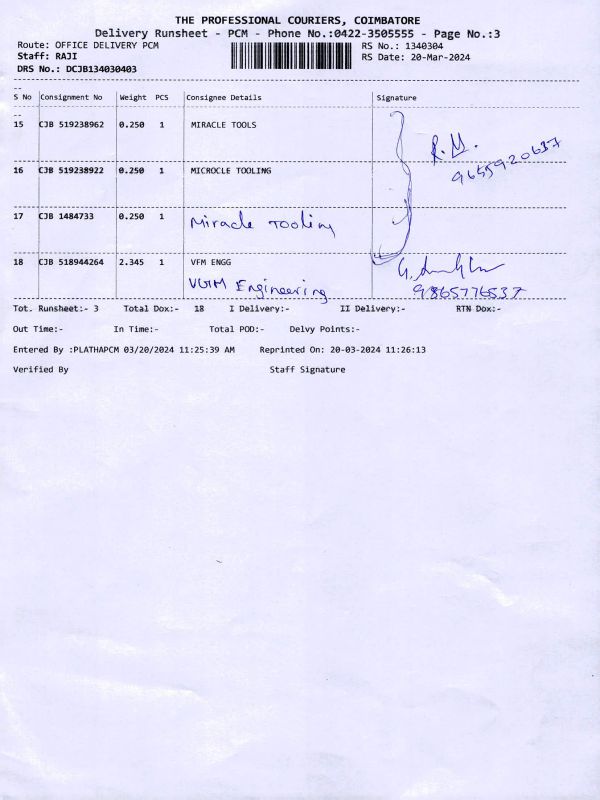 THE PROFESSIONAL COURIERS, COIMBATORE
Delivery Runsheet - PCM - Phone No.:0422-3505555 - Page No.:3
Route: OFFICE DELIVERY PCM RS No.: 1340304
Staff: RAJI RS Date: 20-Mar-2024
DRS No.: DCJB134030403
S No Consignment No Weight PCS Consignee Details Signature
15 CJB 519238962 0.250 1 MIRACLE TOOLS
R.M.
9655920637
16 CJB 519238922 0.250 1 MICROCLE TOOLING
17 CJB 1484733 0.250 1 Miracle Tooling
18 CJB 518944264 2.345 1 VFM ENGG
VGM Engineering 9865776537
Tot. Runsheet:- 3 Total Dox:- 18 I Delivery:- II Delivery:- RTN Dox:-
Out Time:- In Time:- Total POD:- Delvy Points:-
Entered By :PLATHAPCM 03/20/2024 11:25:39 AM Reprinted On: 20-03-2024 11:26:13
Verified By Staff Signature